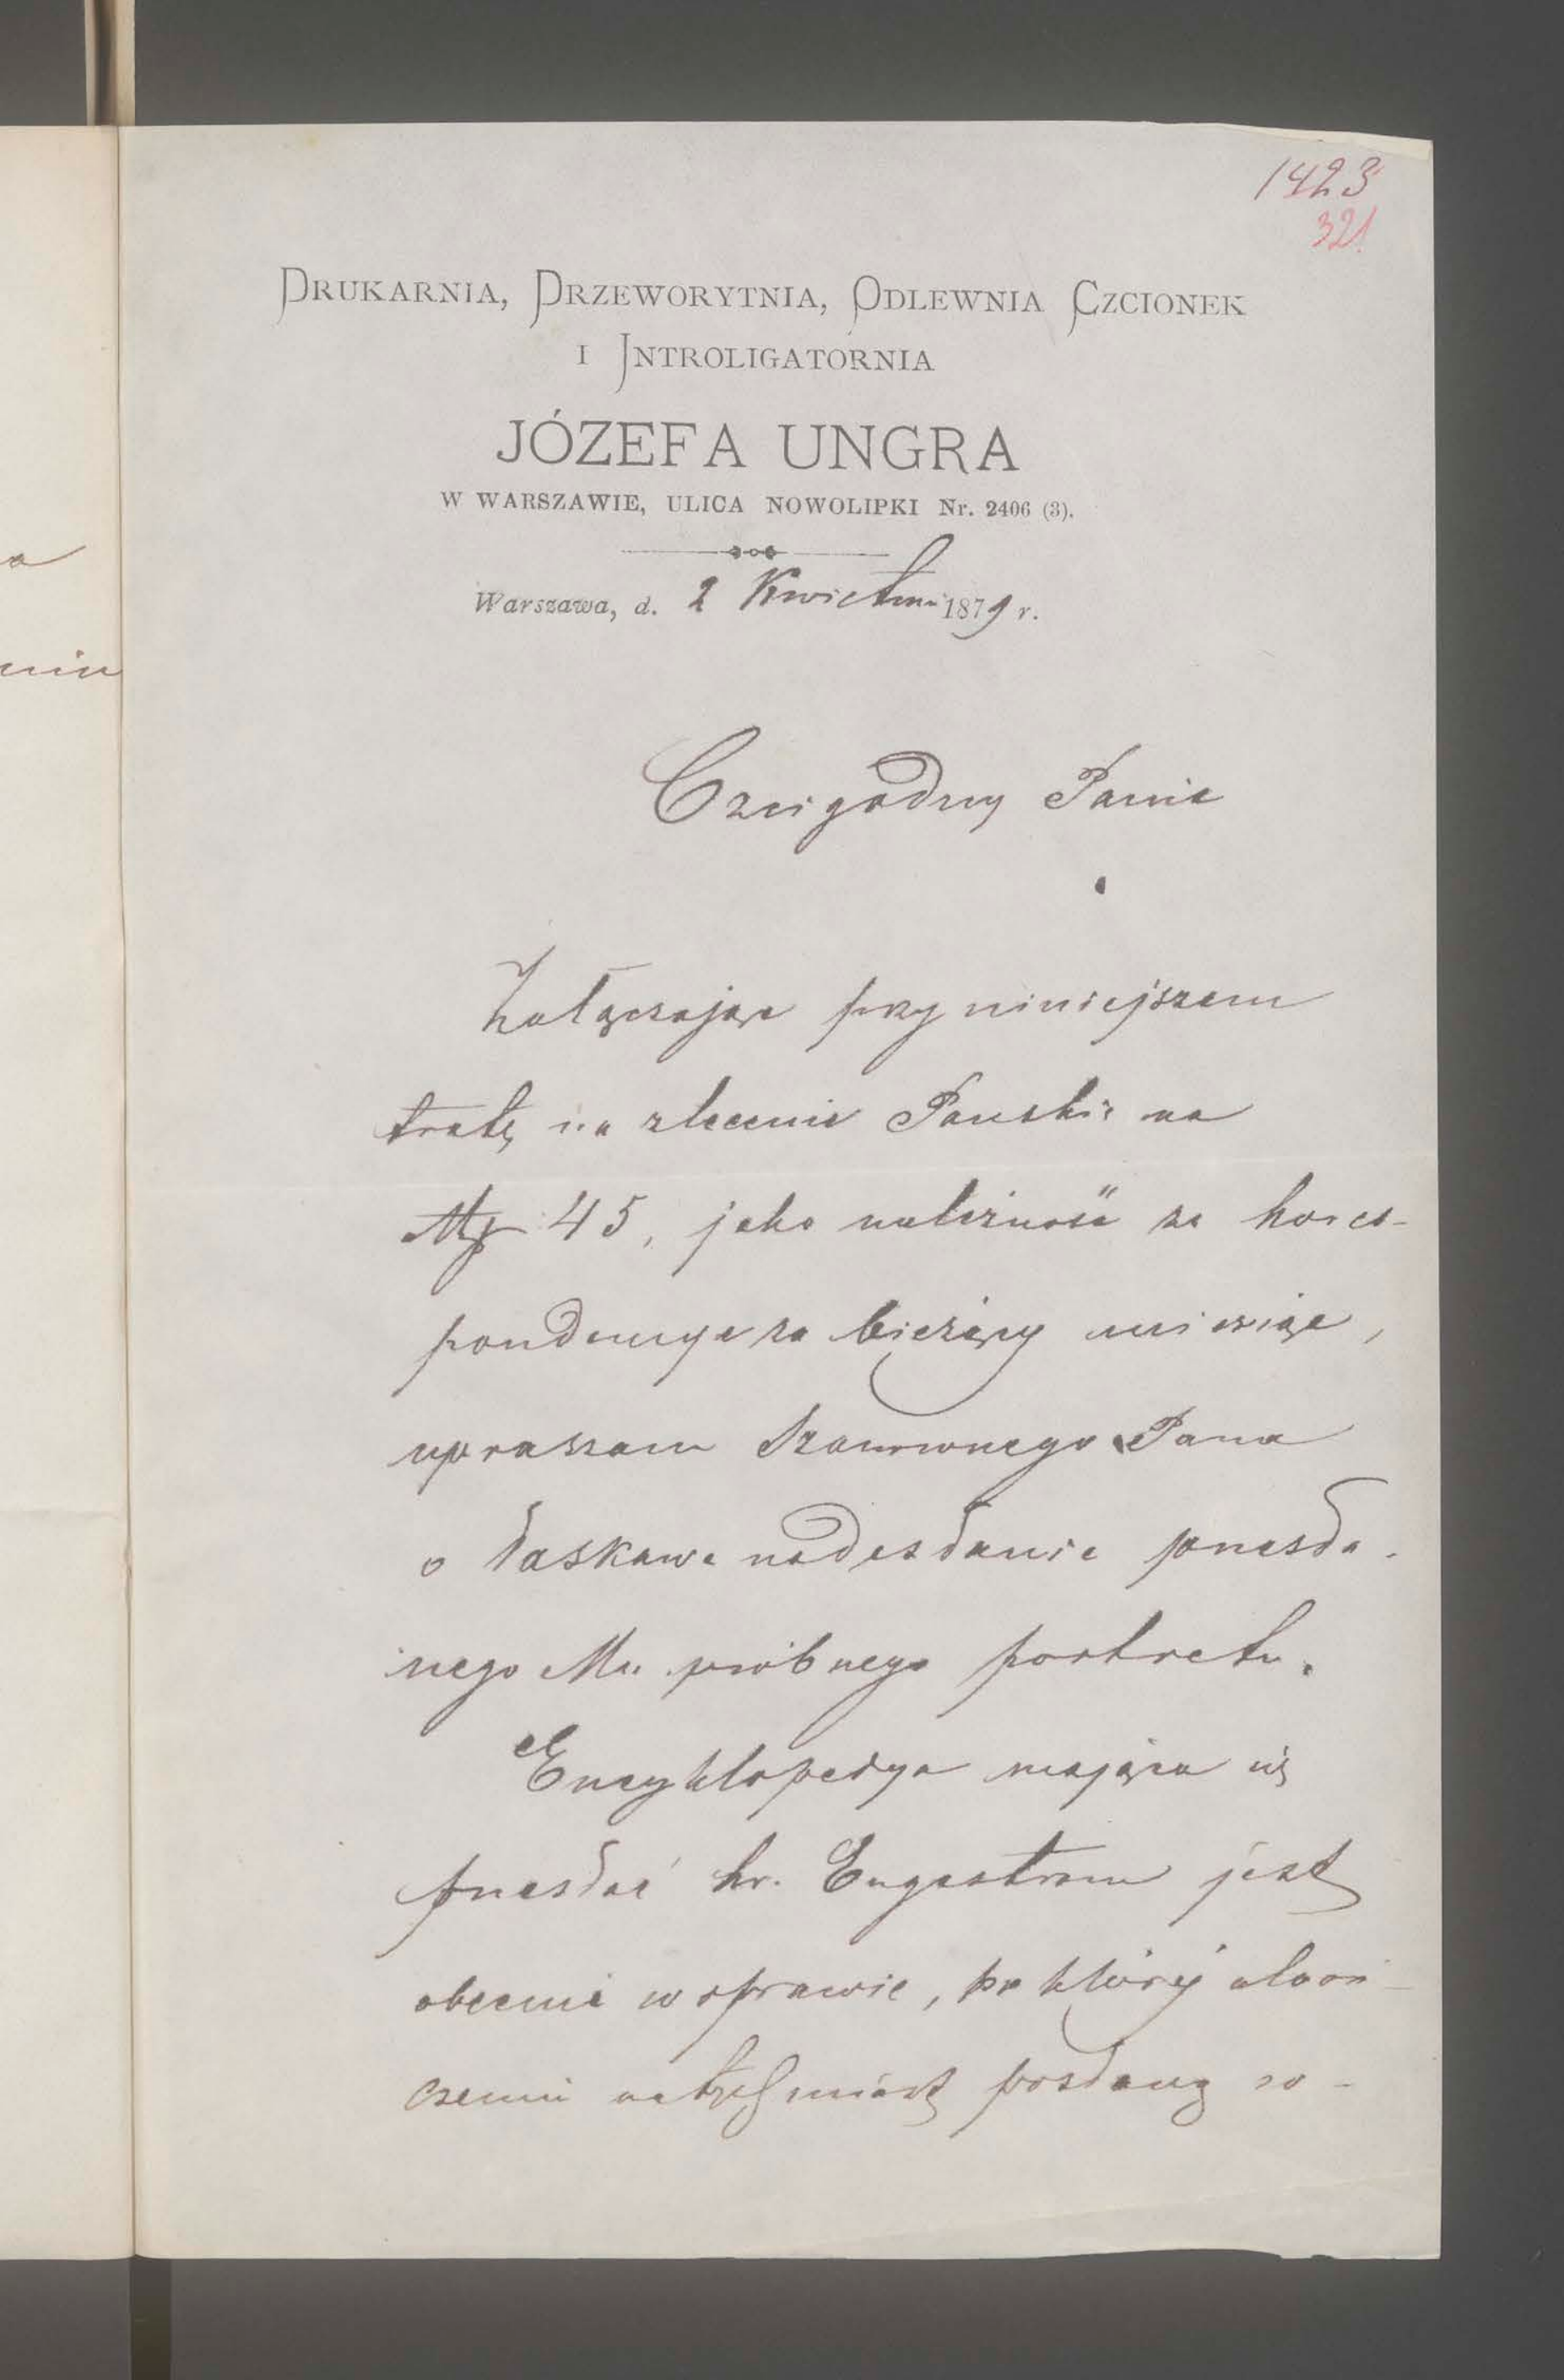 1423
321
DRUKARNIA, DRZEWORYTNIA, ODLEWNIA CZCIONEK
I INTROLIGATORNIA
JÓZEFA UNGRA
W WARSZAWIE, ULICA NOWOLIPKI Nr. 2406 (3).
Warszawa, d. 2 Kwietnia 1879 r.
Czcigodny Panie
Załączając przy niniejszem
tratę na zlecenie Pańskie na
45, jako należność za kores-
pondencye za bieżący miesiąc,
upraszam Szanownego Pana
o łaskawe nadesłanie przesła-
nego Mu próbnego portretu.
Encyklopedya mająca się
przesłać hr. Engestrom jest
obecnie w oprawie, po której ukoń-
czeniu natychmiast posłaną zo-
a
niu